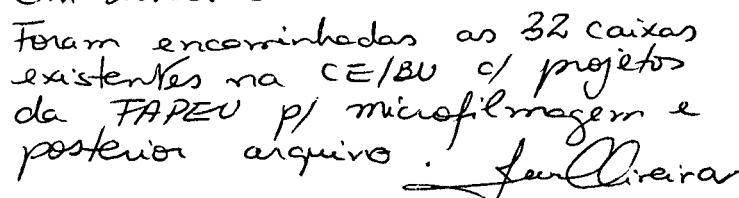 Foram encaminhadas as 32 caixas
existentes na CE/BU c/ projetos
da FAPEU p/ microfilmagem e
posterior arquivo.